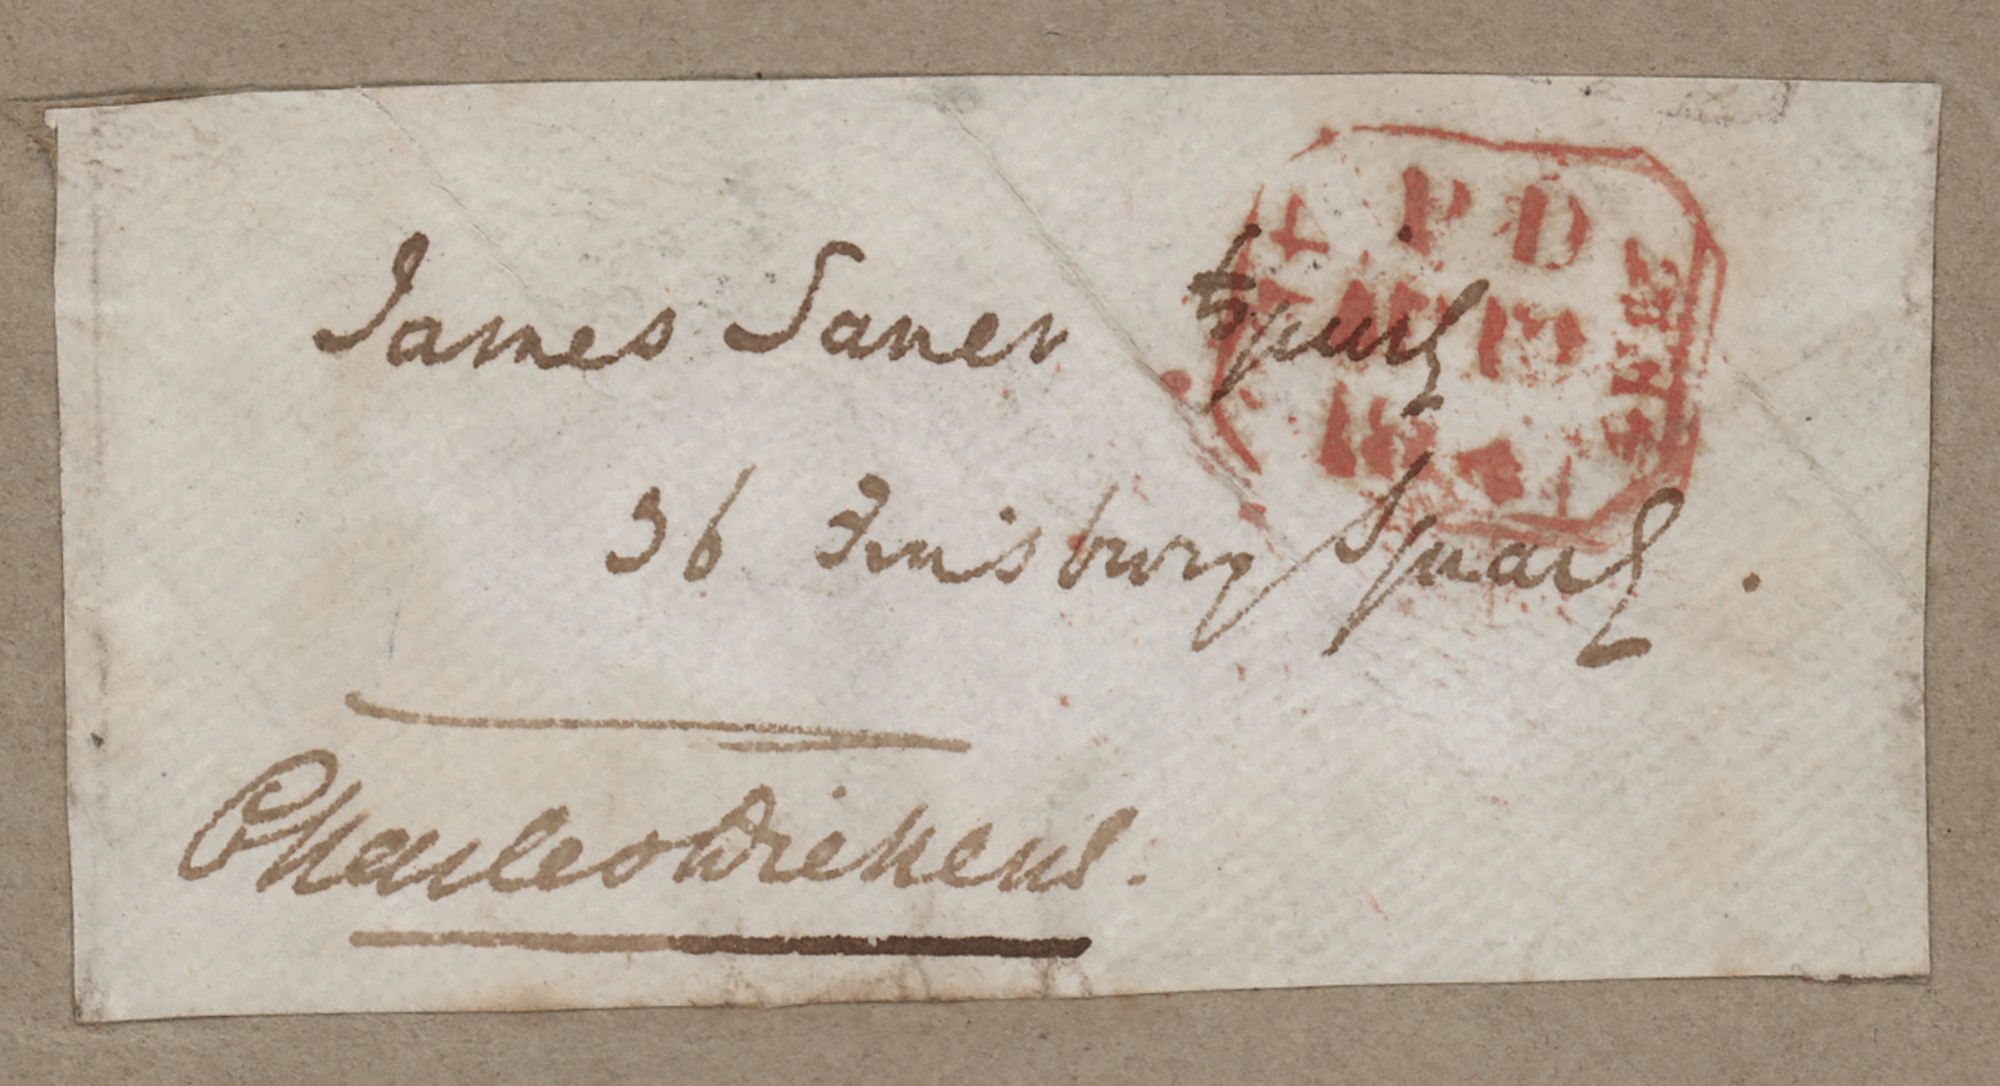 P D
James Saner Esquire
36 Finsbury Square.
Charles Dickens.